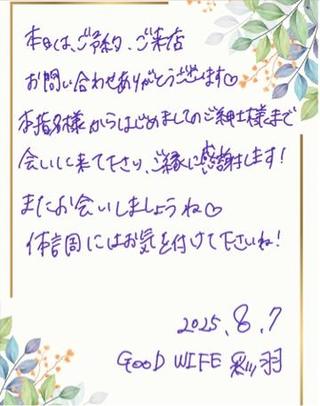 本日は、ご予約、ご来店
お問い合わせありがとうございます♡
本指名様からはじめましてのご紳士様まで
会いに来て下さり、ご縁に感謝します！
またお会いしましょうね♡
体調にはお気を付けて下さいね！
2025.8.7
GOOD WIFE 彩羽